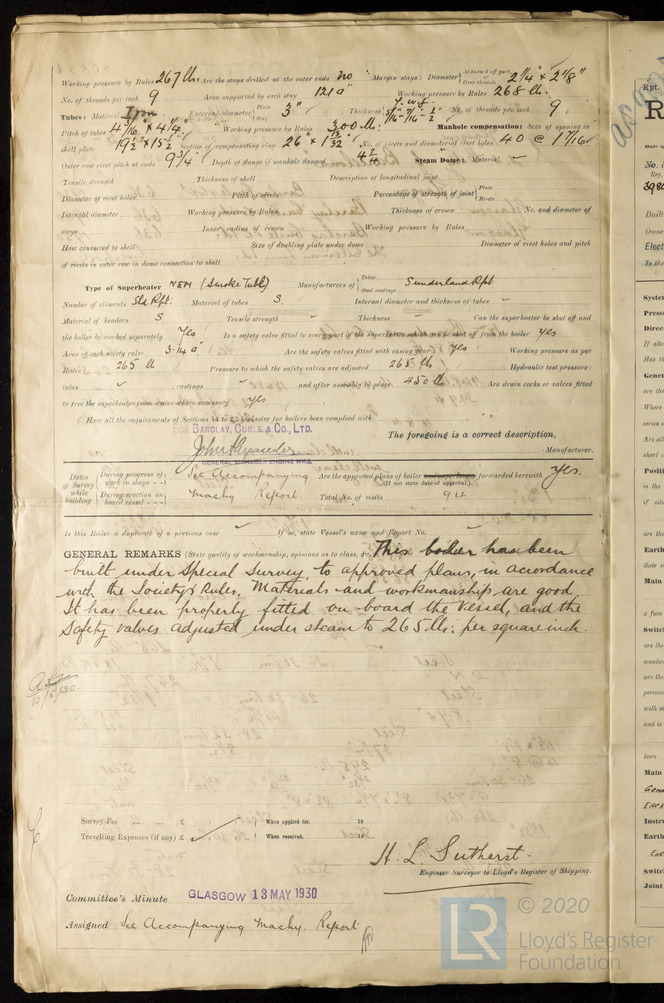 Working pressure by Rules 267 lb. Are the stays drilled at the outer ends no Margin stays: Diameter At turned off part Over threads 2 1/4" & 2 1/8"
No. of threads per inch 9 Area supported by each stay 121 a" Working pressure by Rules 268 lb.
Tubes: Material Iron External diameter Plain Stay 3" Thickness No. of threads per inch 9
Pitch of tubes 4 3/16" x 4 1/4" Working pressure by Rules 300 lb. Manhole compensation: Size of opening in
shell plate 19 1/2" x 15 1/2" Section of compensating ring 26" x 1 13/32" No. of rivets and diameter of rivet holes 40 @ 1 7/16"
Outer row rivet pitch at ends 9 3/4" Depth of flange if manhole flanged Steam Dome: Material –
Tensile strength Thickness of shell Description of longitudinal joint
Diameter of rivet holes Pitch of rivets Percentage of strength of joint Plate Rivets
Internal diameter Working pressure by Rules Thickness of crown No. and diameter of
stays Inner radius of crown Working pressure by Rules
How connected to shell Size of doubling plate under dome Diameter of rivet holes and pitch
of rivets in outer row in dome connection to shell
Type of Superheater NEM (Smoke Tube) Manufacturers of Tubes Steel castings Sunderland Rpt
Number of elements Sld Rpt. Material of tubes S Internal diameter and thickness of tubes –
Material of headers S Tensile strength – Thickness – Can the superheater be shut off and
the boiler be worked separately Yes Is a safety valve fitted to every part of the superheater which can be shut off from the boiler yes
Area of each safety valve 3.14 a" Are the safety valves fitted with easing gear Yes Working pressure as per
Rules 265 lb Pressure to which the safety valves are adjusted 265 lb. Hydraulic test pressure:
tubes – , castings – and after assembly in place 450 lb. Are drain cocks or valves fitted
to free the superheater from water where necessary yes
Have all the requirements of Sections 14 to 23 inclusive for boilers been complied with
FOR BARCLAY, CURLE & CO., LTD.
The foregoing is a correct description,
Manufacturer.
GENERAL MANAGER, ENGINE WKS.
Dates of Survey while building During progress of work in shops - - See Accompanying Are the approved plans of boiler and superheater forwarded herewith yes
(If not state date of approval.)
During erection on board vessel - - - Machy Report Total No. of visits 94
Is this Boiler a duplicate of a previous case – If so, state Vessel's name and Report No. –
GENERAL REMARKS (State quality of workmanship, opinions as to class, &c. This boiler has been
built under Special Survey, to approved plans, in accordance
with the Society's Rules. Materials and workmanship are good.
It has been properly fitted on board the vessel, and the
Safety valves adjusted under steam to 265 lb. per square inch.
10/5/30.
Survey Fee ... ... ... £ : : When applied for, 19
Travelling Expenses (if any) £ : : When received, 19
H. L. Sutherst.
Engineer Surveyor to Lloyd's Register of Shipping.
Committee's Minute GLASGOW 13 MAY 1930
Assigned See Accompanying Machy. Report
LR © 2020
Lloyd's Register
Foundation
Rpt.